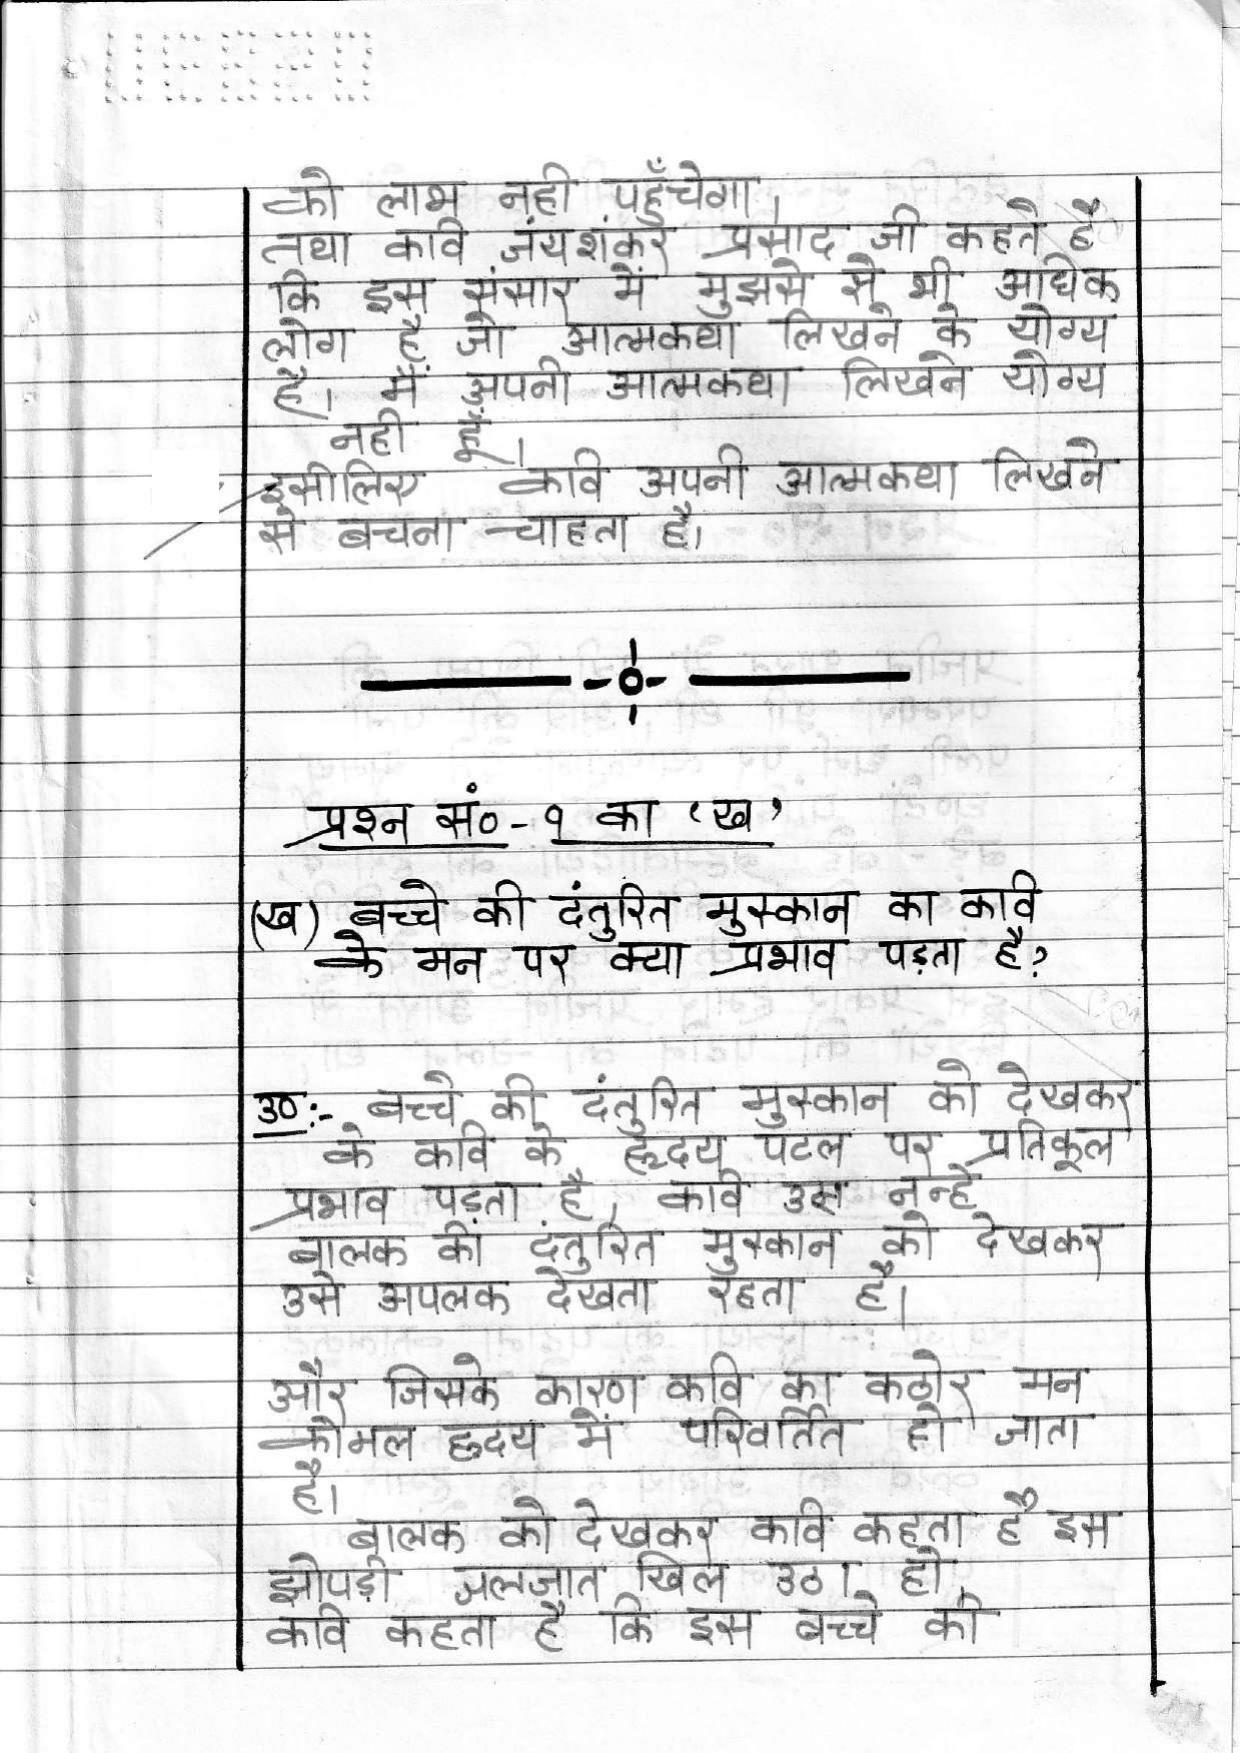 को लाभ नही पहुँचेगा।
तथा कवि जयशंकर प्रसाद जी कहते है
कि इस संसार में मुझसे से भी अधिक
लोग है जो आत्मकथा लिखने के योग्य
है। मैं अपनी आत्मकथा लिखने योग्य
नही हूँ।
इसीलिए कवि अपनी आत्मकथा लिखने
से बचना चाहता है।
प्रश्न सं०-१ का 'ख'
(ख) बच्चे की दंतुरित मुस्कान का कवि
के मन पर क्या प्रभाव पड़ता है?
उ०:- बच्चे की दंतुरित मुस्कान को देखकर
के कवि के हृदय पटल पर प्रतिकूल
प्रभाव पड़ता है, कवि उस नन्हें
बालक की दंतुरित मुस्कान को देखकर
उसे अपलक देखता रहता है।
और जिसके कारण कवि का कठोर मन
कोमल हृदय में परिवर्तित हो जाता
है।
बालक को देखकर कवि कहता है इस
झोपड़ी जलजात खिल उठा हो,
कवि कहता है कि इस बच्चे की